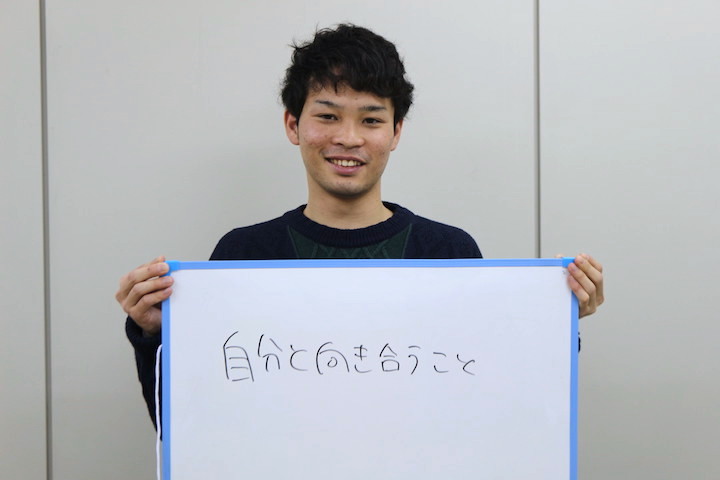 自分と向き合うこと